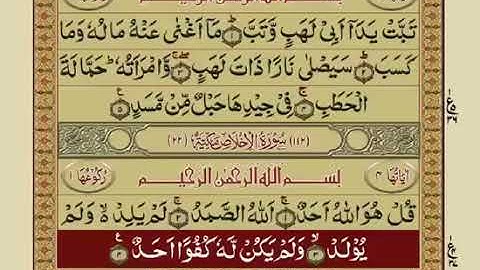 بِسْمِ اللهِ الرَّحْمٰنِ الرَّحِيْمِ
تَبَّتْ يَدَآ اَبِىْ لَهَبٍ وَّتَبَّ ۝١ مَآ اَغْنٰى عَنْهُ مَالُهٗ وَمَا
كَسَبَ ۝٢ سَيَصْلٰى نَارًا ذَاتَ لَهَبٍ ۝٣ وَّامْرَاَتُهٗ ؕ حَمَّالَةَ
الْحَطَبِ ۝٤ فِىْ جِيْدِهَا حَبْلٌ مِّنْ مَّسَدٍ ۝٥
(١١٢) سُوْرَةُ الْاِخْلَاصِ مَكِّيَّةٌ (٢٢)
اٰيَاتُهَا ٤ بِسْمِ اللهِ الرَّحْمٰنِ الرَّحِيْمِ رُكُوْعُهَا ١
قُلْ هُوَ اللهُ اَحَدٌ ۝١ اَللهُ الصَّمَدُ ۝٢ لَمْ يَلِدْ ۙ وَلَمْ
يُوْلَدْ ۝٣ وَلَمْ يَكُنْ لَّهٗ كُفُوًا اَحَدٌ ۝٤